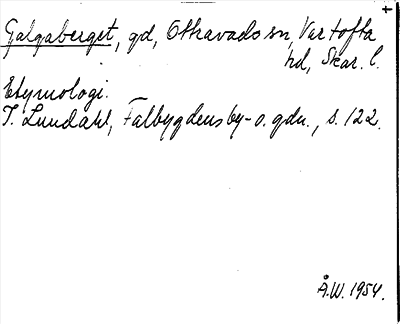 Galgaberget, gd, Othavads sn, Vartofta
hd, Skar. l.
Etymologi.
I. Lundahl, Falbygdens by- o. gdn., s. 122.
Å.W. 1954.